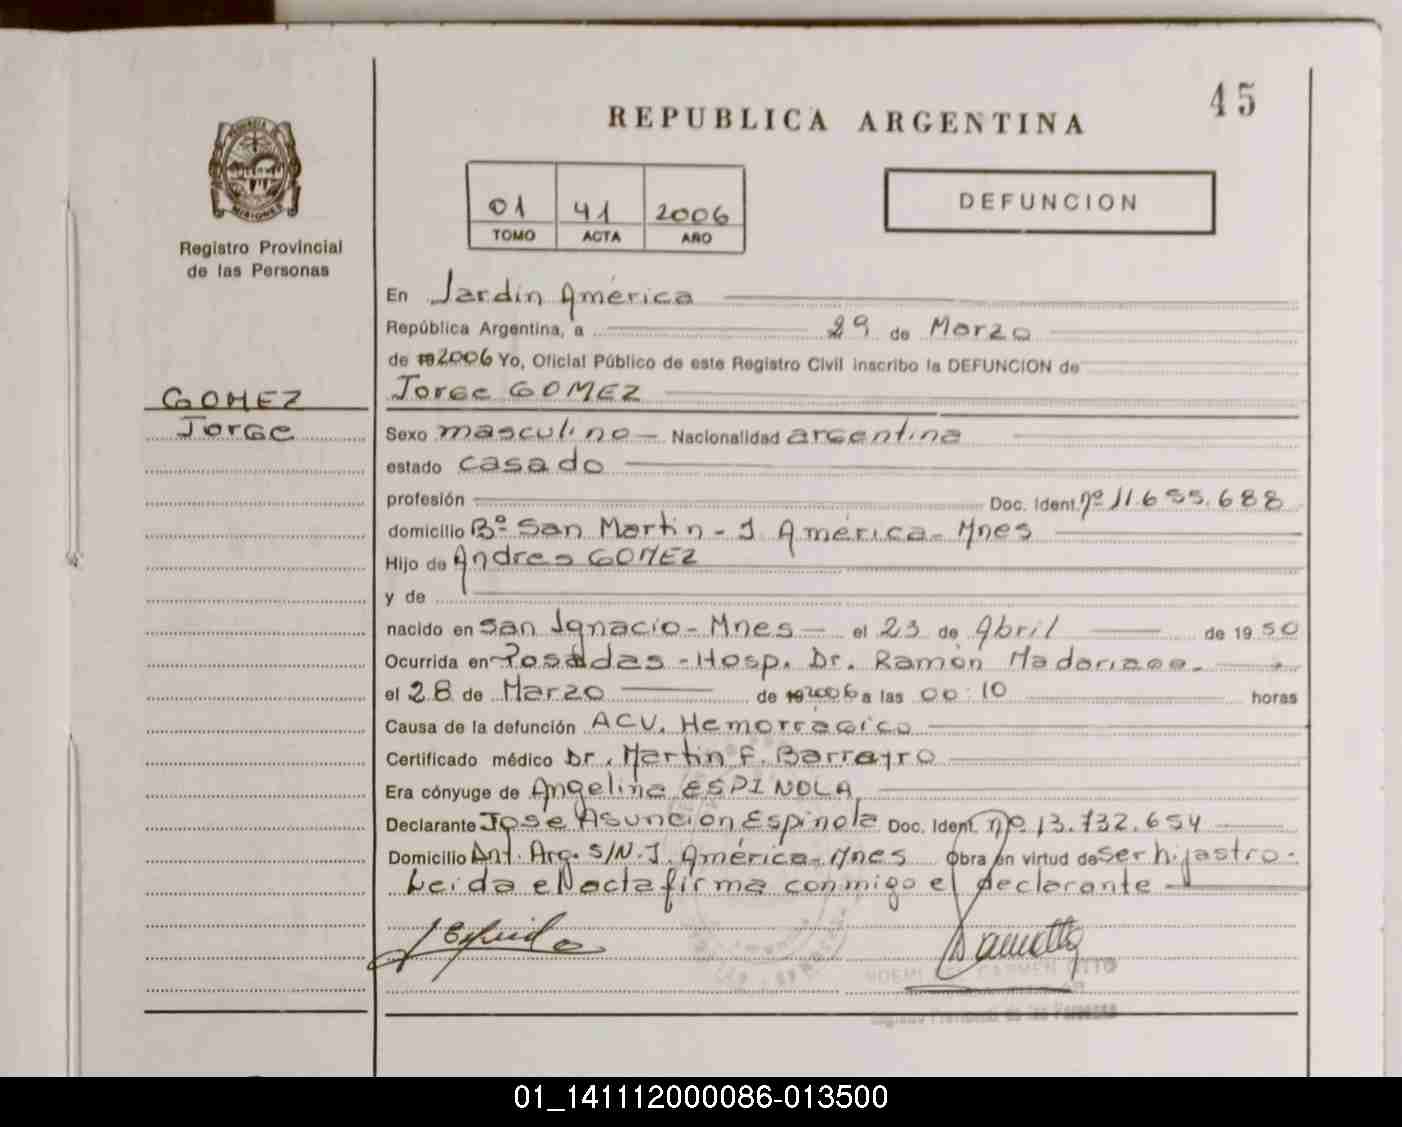 45
REPUBLICA ARGENTINA
01 41 2006
TOMO ACTA AÑO
DEFUNCION
PROVINCIA DE
MISIONES
Registro Provincial
de las Personas
GOMEZ
Jorge
En Jardín América
República Argentina, a 29 de Marzo
de 19 2006 Yo, Oficial Público de este Registro Civil inscribo la DEFUNCION de
Jorge GOMEZ
Sexo masculino — Nacionalidad argentina
estado casado
profesión Doc. Ident. nº 11.655.688
domicilio Bº San Martin - J. América - Mnes
Hijo de Andres GOMEZ
y de
nacido en San Ignacio - Mnes — el 23 de Abril de 1950
Ocurrida en Posadas - Hosp. Dr. Ramón Madariaga.
el 28 de Marzo de 19 2006 a las 00:10 horas
Causa de la defunción ACV. Hemorrágico
Certificado médico Dr. Martin F. Barrayro
Era cónyuge de Angelina ESPINOLA
Declarante José Asunción Espinola Doc. Ident. nº 13.732.654
Domicilio Ant. Arg. S/N. J. América - Mnes Obra en virtud de ser hijastro.
Leida el acta firma conmigo el declarante
NOEMI DEL CARMEN OTTO
Registro Provincial de las Personas
01_141112000086-013500